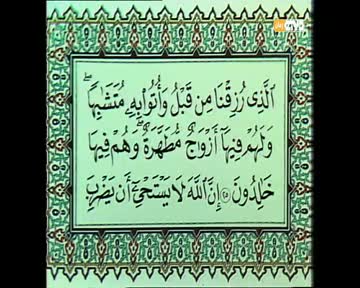 ٱلَّذِى رُزِقْنَا مِن قَبْلُ وَأُتُوا۟ بِهِۦ مُتَشَٰبِهًاۖ
وَلَهُمْ فِيهَآ أَزْوَٰجٌ مُّطَهَّرَةٌۖ وَهُمْ فِيهَا
خَٰلِدُونَ ٢٥ إِنَّ ٱللَّهَ لَا يَسْتَحْىِۦٓ أَن يَضْرِبَ